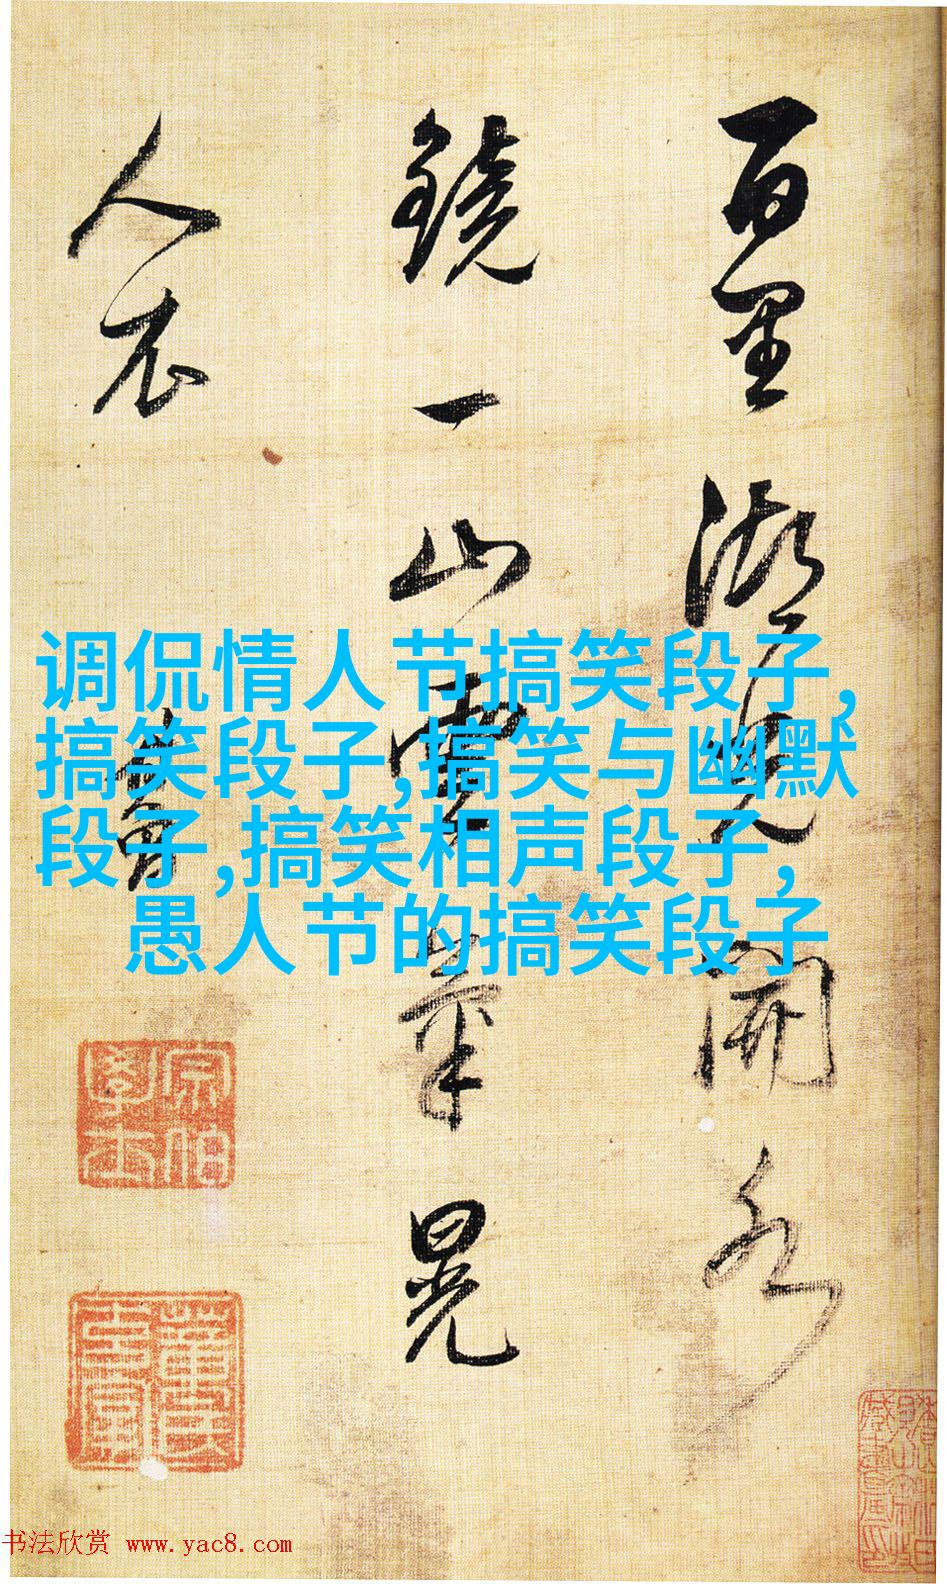 百里湖開水
鏡一山雲晃
人衣
调侃情人节搞笑段子,
搞笑段子,搞笑与幽默
段子,搞笑相声段子,
愚人节的搞笑段子
宗伯
學士
书法欣赏 www.yac8.com